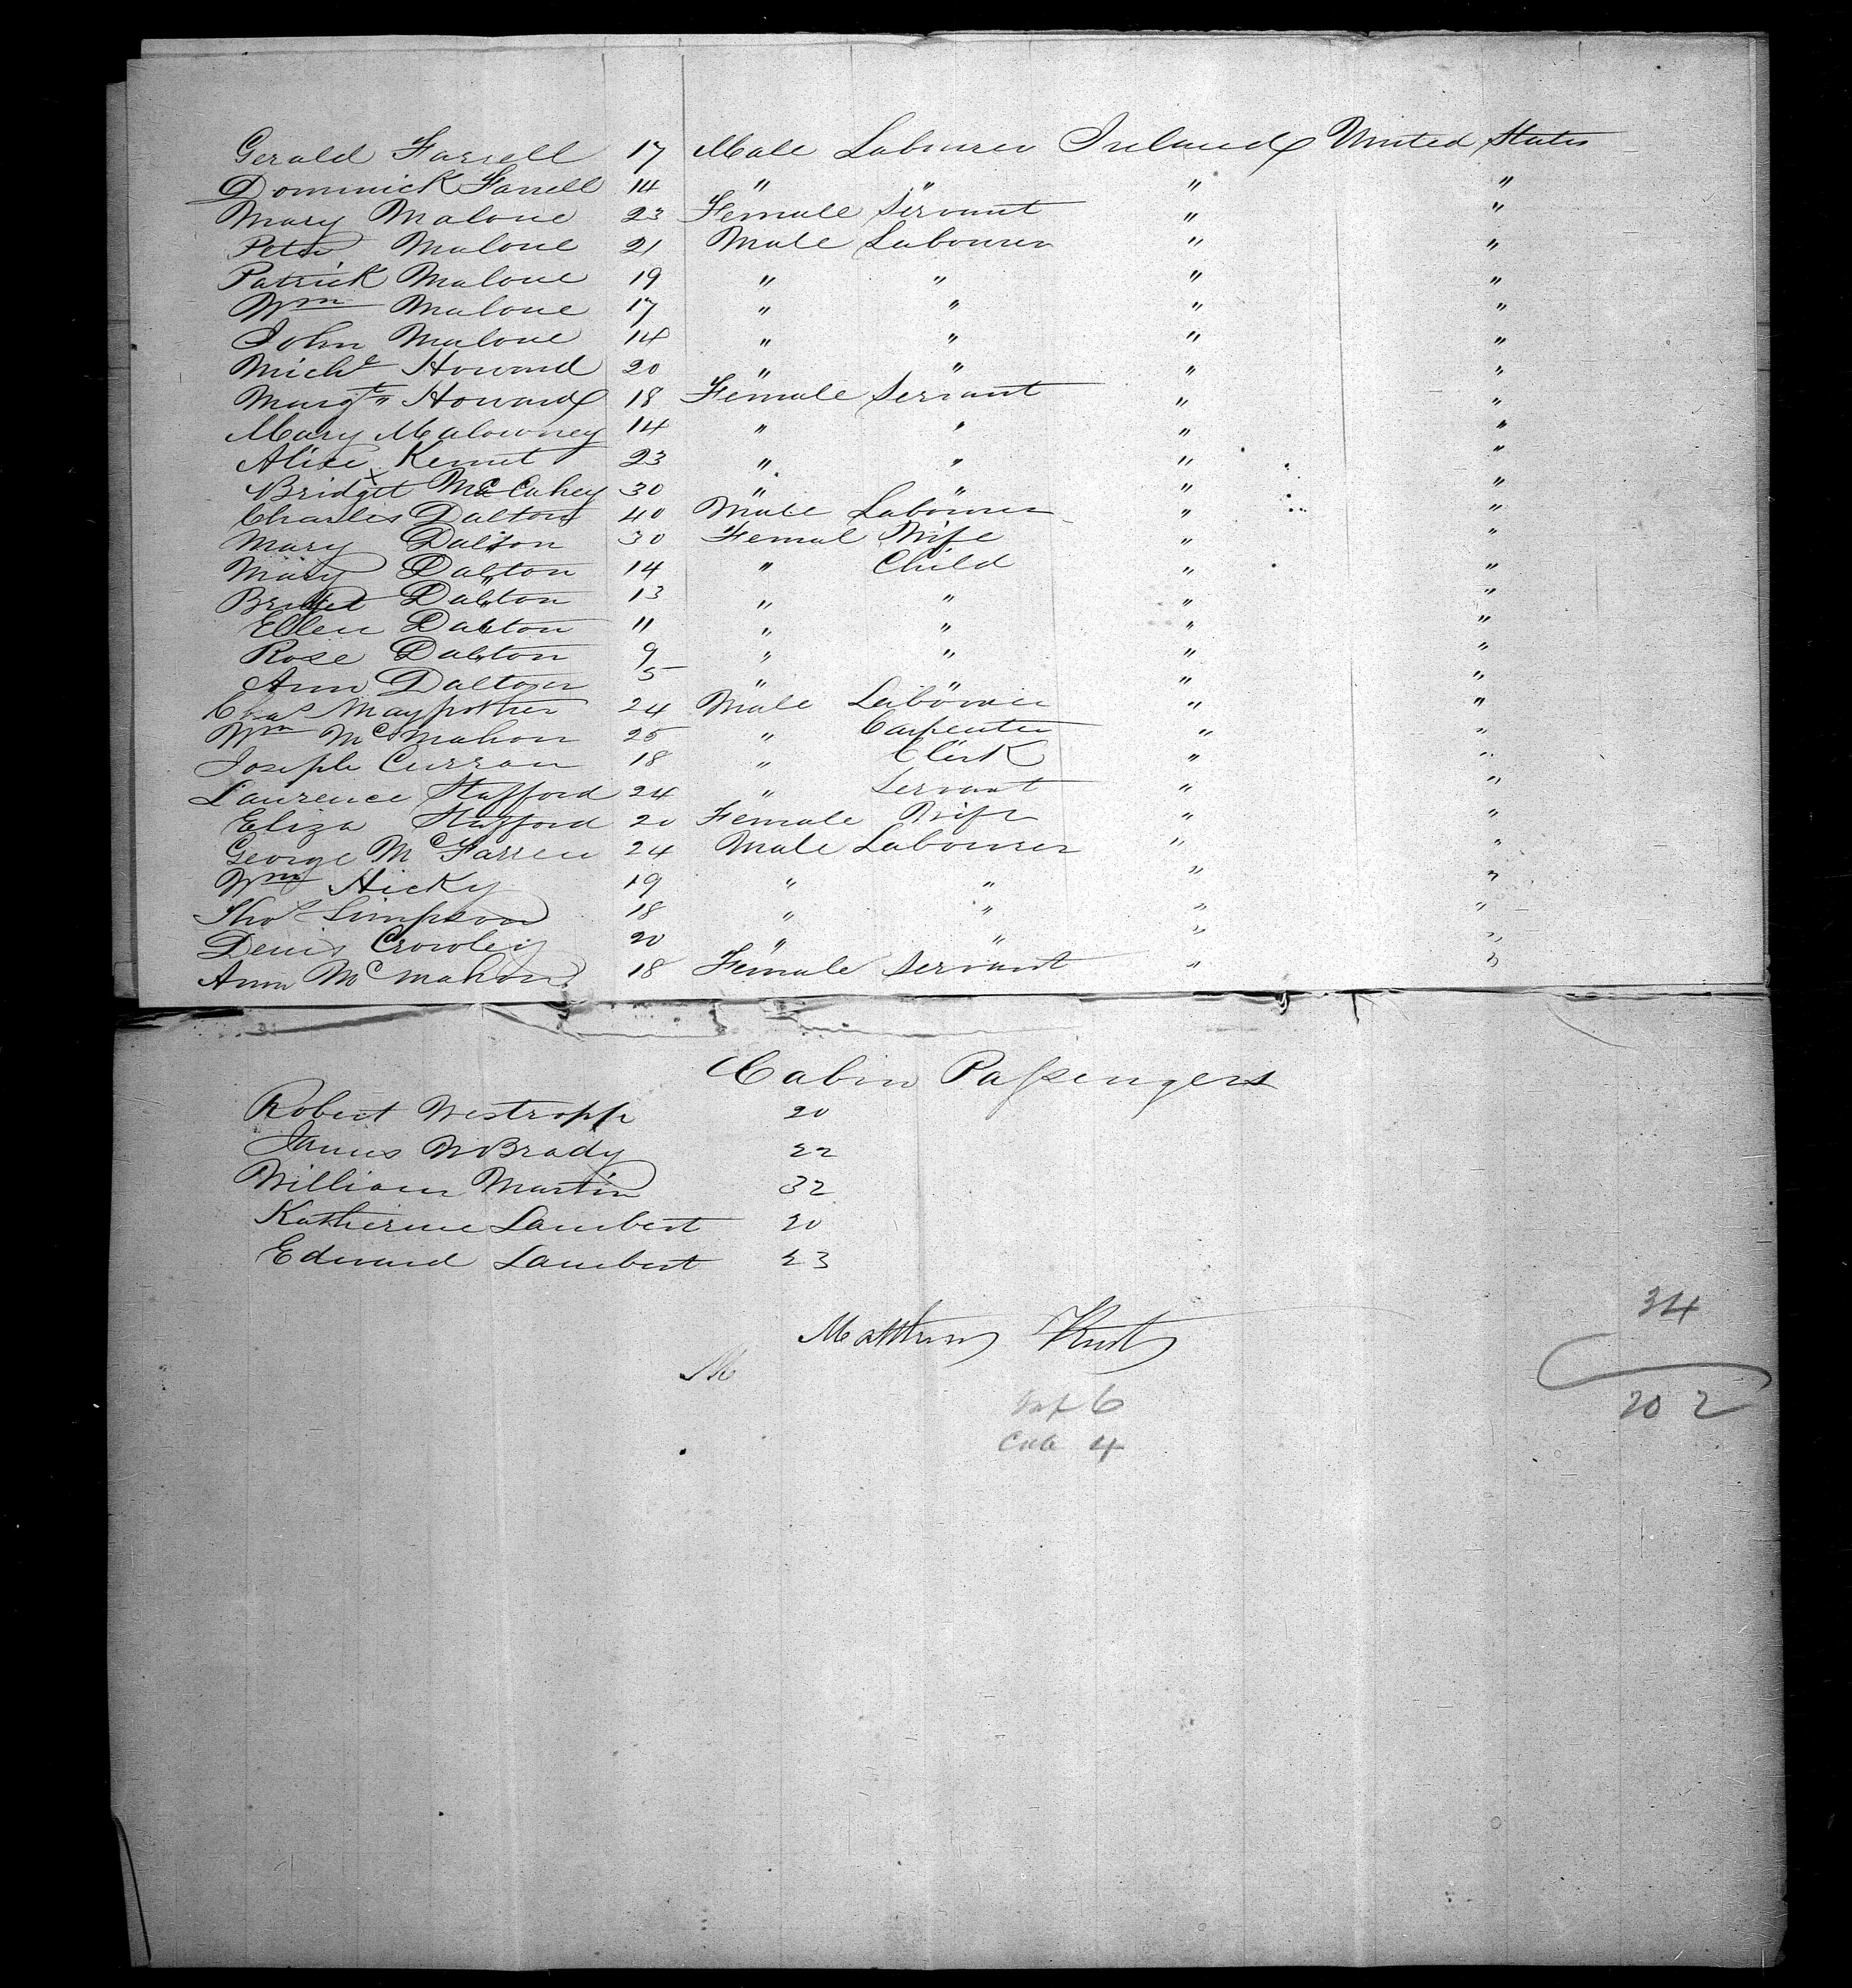 Gerald Farrell 17 Male Labourer Ireland United States
Dominick Farrell 14 " " " "
Mary Malone 23 Female Servant " "
Peter Malone 21 Male Labourer " "
Patrick Malone 19 " " " "
Wm Malone 17 " " " "
John Malone 14 " " " "
Michl Howard 20 " " " "
Margt Howard 18 Female Servant " "
Mary Malowney 14 " " " "
Alice 23 " " " "
Bridget McCahey 30 " " " "
Charles Dalton 40 Male Labourer " "
Mary Dalton 30 Femal Wife " "
Mary Dalton 14 " Child " "
Bridget Dalton 13 " " " "
Ellen Dalton 11 " " " "
Rose Dalton 9 " " " "
Ann Dalton 5 " " " "
Chas Maypother 24 Male Labourer " "
Wm McMahon 25 " Carpenter " "
Joseph Curran 18 " Clerk " "
Laurence Stafford 24 " Servant " "
Eliza Stafford 20 Female Wife " "
George McFarren 24 Male Labourer " "
Wm Hicky 19 " " " "
Thos Simpson 18 " " " "
Denis Crowley 20 " " " "
Ann McMahon 18 Female Servant " "
Cabin Passengers
Robert Westropp 20
James W Brady 22
William Martin 32
Katherine Lambert 20
Edward Lambert 23
34
Matthew
202
Inf 6
Cab 4